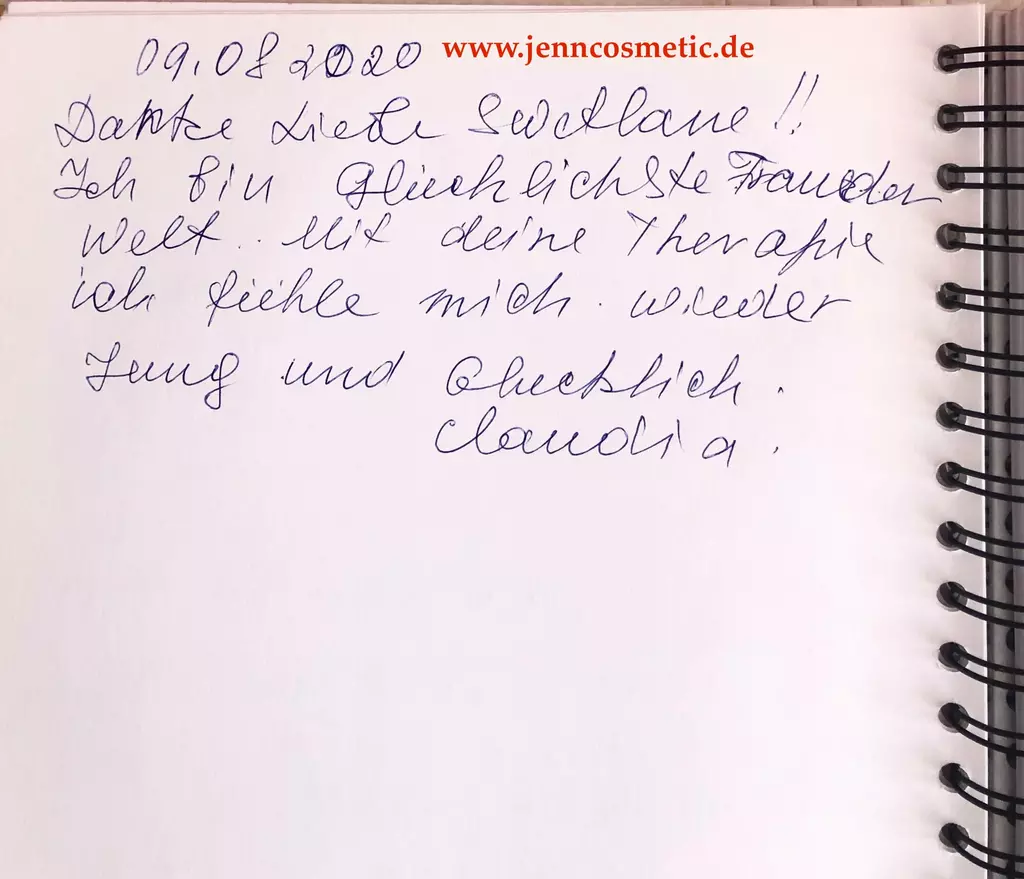 09.08 2020 www.jenncosmetic.de
Dankke Liebe Swetlane!!
Ich bin Glücklichste Frau der
Welt. Mit deine Therapie
ich fühle mich wieder
Jung und Glucklich.
Claudia.